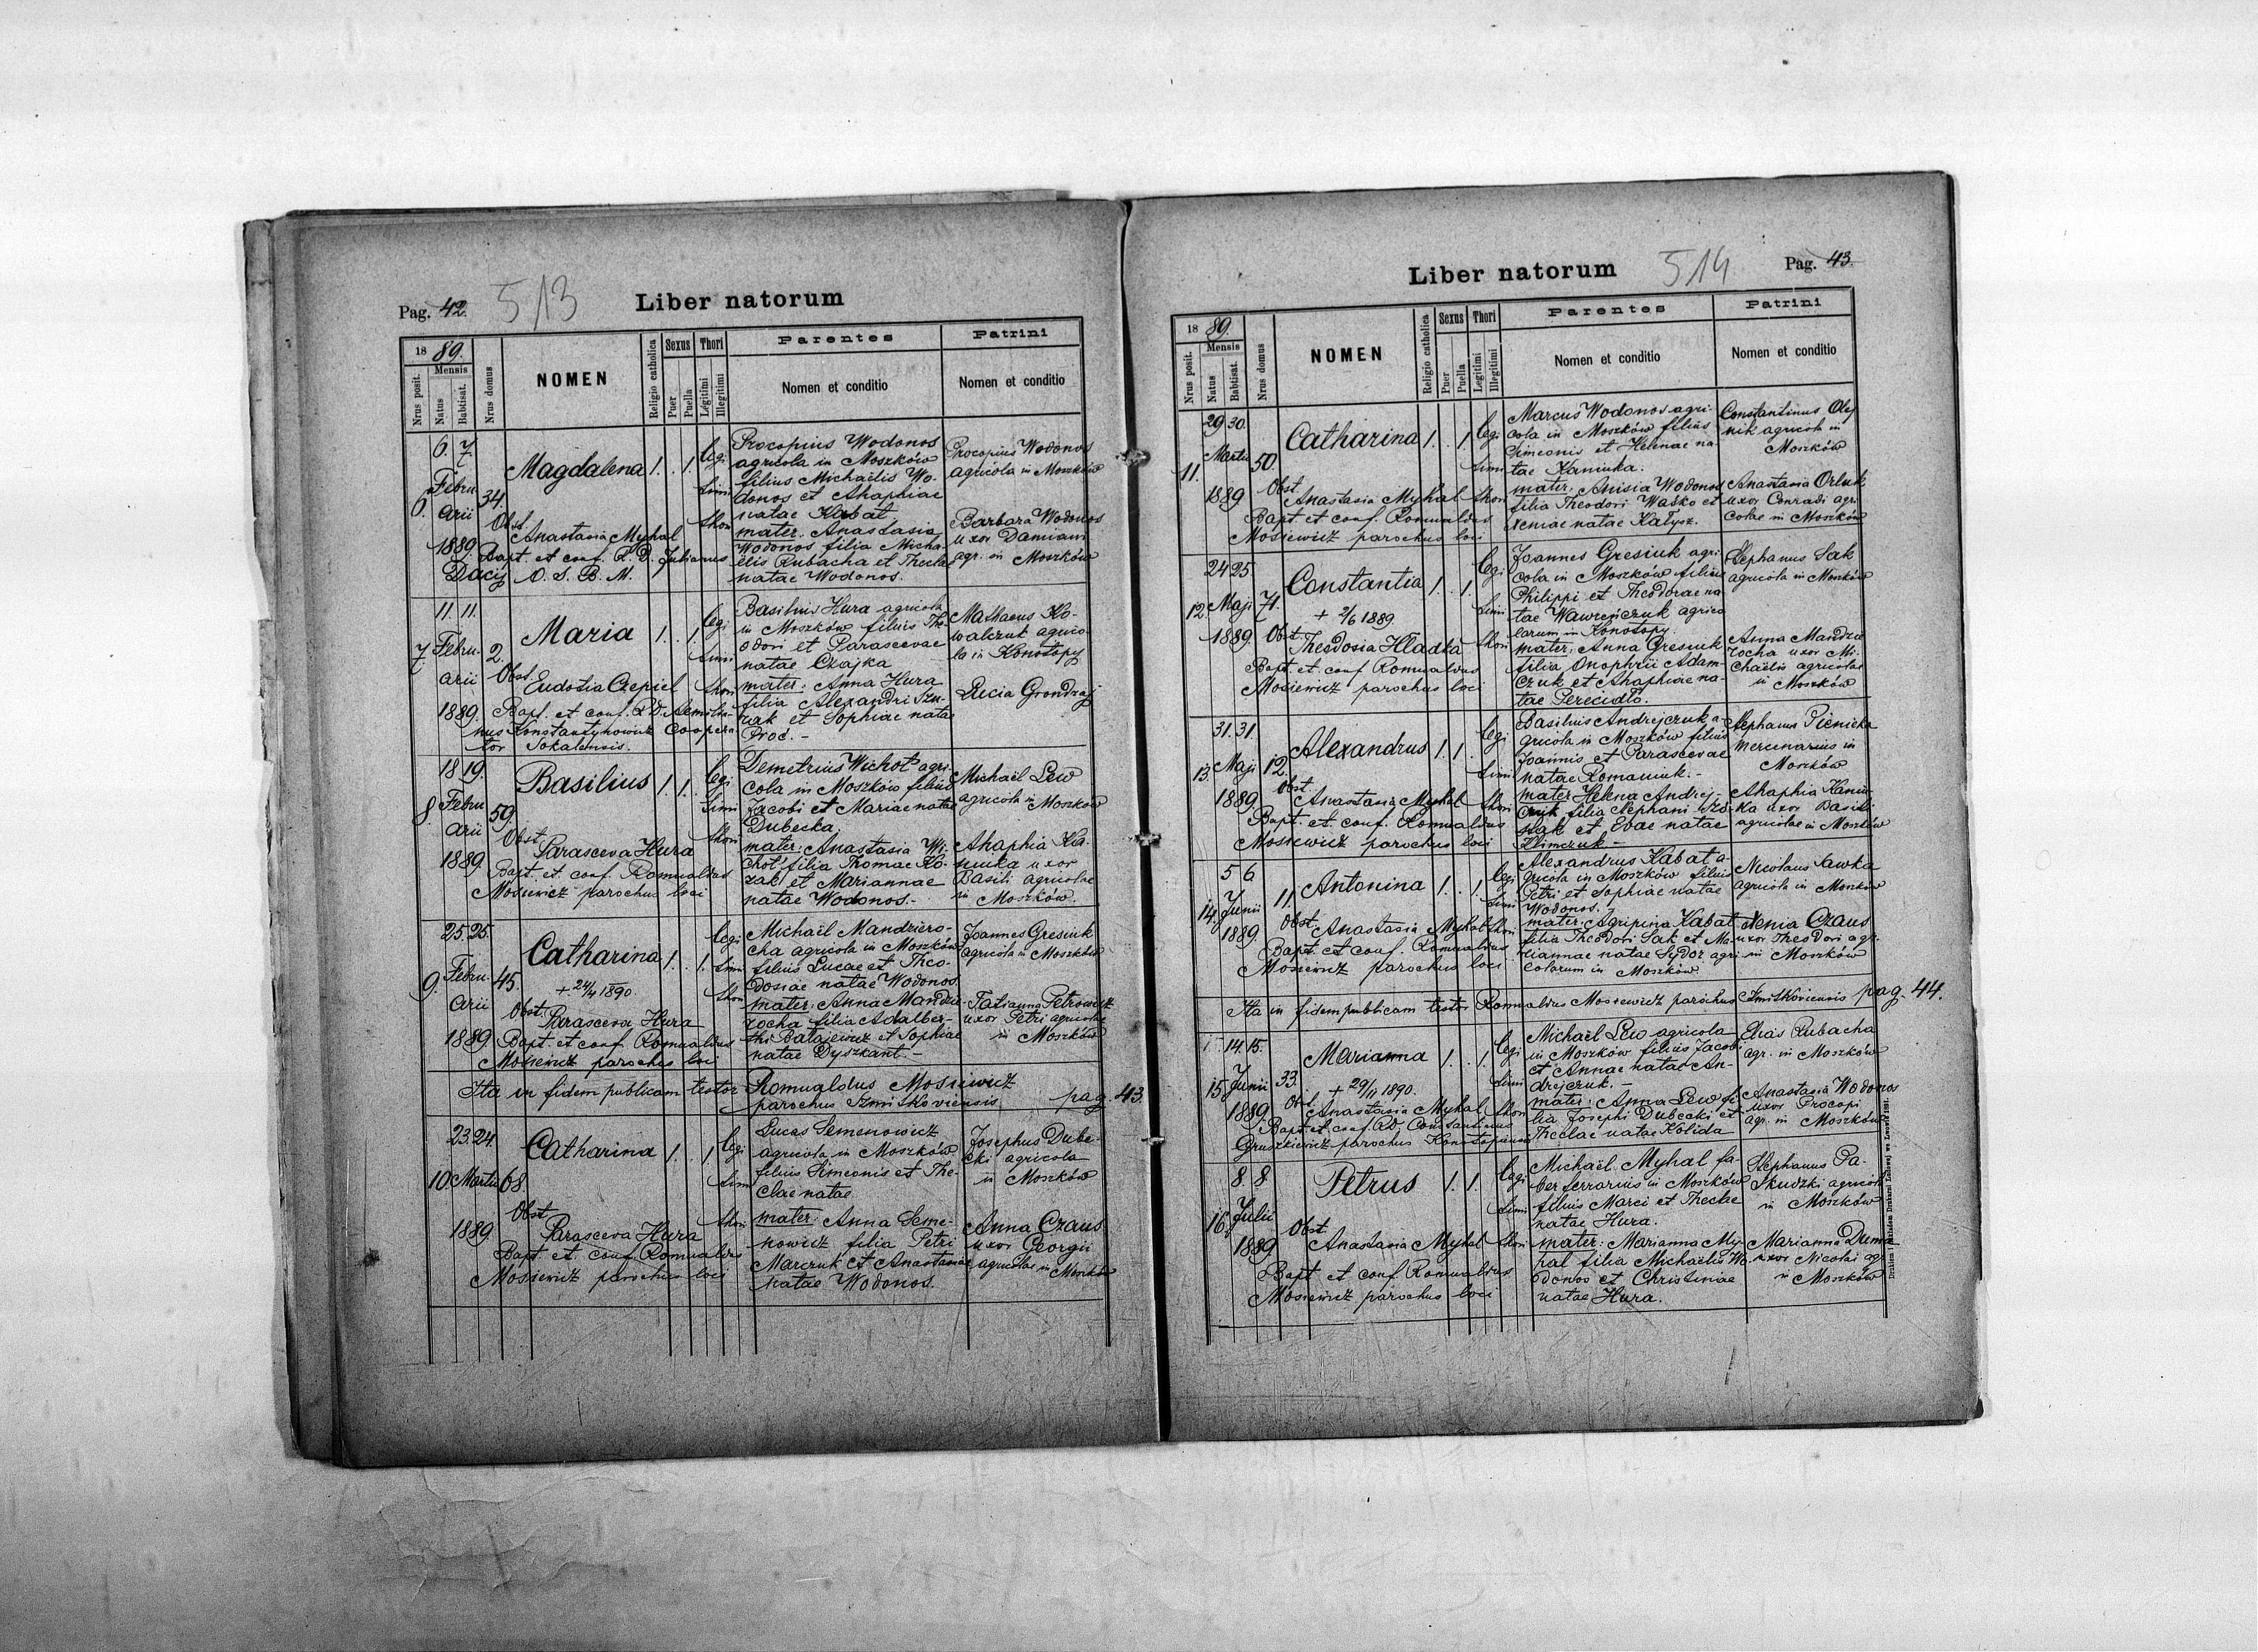 Pag. 42. 513 Liber natorum
18 89.
Mensis
Nrus posit.
Natus
Babtisat.
Nrus domus
NOMEN
Religio catholica
Sexus
Puer
Puella
Thori
Legitimi
Illegitimi
Parentes
Nomen et conditio
Patrini
Nomen et conditio
6.
6. 7
Febru
arii
1889.
34.
Magdalena 1. . 1.
legi
timi
thori
Obst.
Anastasia Myhal
Bapt. et conf. R. D. Julianus
Dacij O. S. B. M.
Procopius Wodonos
agricola in Moszków
filius Michaëlis Wo-
donos et Ahaphiae
natae Kabat
mater: Anastasia
Wodonos filia Micha-
ëlis Rubacha et Theclae
natae Wodonos.
Procopius Wodonos
agricola in Moszków
Barbara Wodonos
uxor Damiani
agr. in Moszków
7.
11. 11.
Febru-
arii
1889.
2.
Maria 1. . 1.
legi
timi
thori
Obst.
Eudosia Czepiel
Bapt. et conf. R.D. Aemilia-
nus Konstantynowicz Coopera-
tor Sokalensis.
Basilius Hura agricola
in Moszków filius The-
odori et Parascevae
natae Czajka
mater: Anna Hura
filia Alexandri Szu-
rak et Sophiae natae
Proć. -
Mathaeus Ko-
walczuk agrico-
la in Konotopy
Lucia Grondzaj
8.
18 19.
Febru
arii
1889
59.
Basilius 1. 1.
legi
timi
thori
Obst.
Parasceva Hura
Bapt. et conf. Romualdus
Mosiewicz parochus loci
Demetrius Wichot agri-
cola in Moszków filius
Jacobi et Mariae natae
Dubecka
mater: Anastasia Wi-
chot filia Thomae Ko-
zak et Mariannae
natae Wodonos.-
Michaël Lew
agricola in Moszków
Ahaphia Ka-
niuka uxor
Basili agricolae
in Moszków.
9.
25. 25.
Febru-
arii
1889.
45.
Catharina 1. . 1.
+ 24/4 1890.
legi
timi
thori
Obst.
Parasceva Hura
Bapt. et conf. Romualdus
Mosiewicz parochus loci
Michaël Mandziero-
cha agricola in Moszków
filius Lucae et Theo-
dosiae natae Wodonos
mater: Anna Mandzie-
rocha filia Adalber-
thi Batajewicz et Sophiae
natae Dyszkant.-
Joannes Gresiuk
agricola in Moszków
Tatianna Petrowicz
uxor Petri agricolae
in Moszków
Ita in fidem publicam testor Romualdus Mosiewicz
parochus Szmitkoviensis pag. 43.
10.
23. 24.
Martii
1889
68
Catharina 1. . 1.
legi
timi
thori
Obst
Parasceva Hura
Bapt. et conf. Romualdus
Mosiewicz parochus loci
Lucas Semenowicz
agricola in Moszków
filius Simeonis et The-
clae natae
mater: Anna Seme-
nowicz filia Petri
Marczuk et Anastasiae
natae Wodonos.
Josephus Dube-
cki agricola
in Moszków
Anna Czaus
uxor Georgii
agricolae in Moszków
Liber natorum 514 Pag. 43.
18 89.
Mensis
Nrus posit.
Natus
Babtisat.
Nrus domus
NOMEN
Religio catholica
Sexus
Puer
Puella
Thori
Legitimi
Illegitimi
Parentes
Nomen et conditio
Patrini
Nomen et conditio
11.
29 30.
Martii
1889
50.
Catharina 1. . 1.
legi
timi
thori
Obst
Anastasia Myhal
Bapt. et conf. Romualdus
Mosiewicz parochus loci
Marcus Wodonos agri-
cola in Moszków filius
Simeonis et Helenae na-
tae Kaniuka.
mater: Anisia Wodonos
filia Theodori Waśko et
Xeniae natae Kałysz.
Constantinus Olej
nik agricola in
Moszków
Anastasia Orluk
uxor Conradi agri-
colae in Moszków
12.
24 25
Maji
1889
71.
Constantia 1. . 1.
+ 2/6 1889
legi
timi
thori
Obst.
Theodosia Hładka
Bapt. et. conf Romualdus
Mosiewicz parochus loci
Joannes Gresiuk agri-
cola in Moszków filius
Philippi et Theodorae na
tae Wawreńczuk agrico
larum in Konotopy.
mater: Anna Gresiuk
filia Onophrii Adam-
czuk et Ahaphiae na-
tae Perecidło.
Stephanus Sak
agricola in Moszków
Anna Mandzie
rocha uxor Mi-
chaëlis agricolae
in Moszków
13.
31. 31.
Maji
1889.
12.
Alexandrus 1. 1.
legi
timi
thori
Obst.
Anastasia Myhal
Bapt. et. conf. Romualdus
Mosiewicz parochus loci
Basilius Andrejczuk a-
gricola in Moszków filius
Joannis et Parascevae
natae Romaniuk.-
mater Helena Andrej-
czuk filia Stephani
et Evae natae
Klimczuk-
Stephanus Pienicka
mercenarius in
Moszków
Ahaphia Kaniu-
ka uxor Basili
agricolae in Moszków
14.
5 6
Junii
1889.
11.
Antonina 1. . 1.
legi
timi
thori
Obst.
Anastasia Myhal
Bapt et conf. Romualdus
Mosiewicz parochus loci
Alexandrus Kabat a-
gricola in Moszków filius
Petri et Sophiae natae
Wodonos.
mater: Agripina Kabat
filia Theodori Sak et Ma-
riannae natae Sydor agri
colarum in Moszków
Nicolaus Sawka
agricola in Moszków
Xenia Czaus
uxor Theodori agr.
in Moszków
Ita in fidem publicam testor Romualdus Mosiewicz parochus Szmitkoviensis pag. 44.
15
14. 15.
Junii
1889
33.
Marianna 1. . 1.
+ 29/11 1890.
legi
timi
thori
Obst.
Anastasia Myhal
Bapt. et conf. RD Constantinus
Gruszkiewicz parochus Konotopiensis
Michaël Lew agricola
in Moszków filius Jacobi
et Annae natae An-
drejczuk.-
mater: Anna Lew fi-
lia Josephi Dubecki et
Theclae natae Kolida
Elias Rubacha
agr. in Moszków
Anastasia Wodonos
uxor Procopi
agr. in Moszków
16.
8. 8.
Julii
1889
Petrus 1. 1.
legi
timi
thori
Obst
Anastasia Myhal
Bapt et conf. Romualdus
Mosiewicz parochus loci
Michaël Myhal fa-
ber ferrarius in Moszków
filius Marci et Theclae
natae Hura.
mater: Marianna My-
hal filia Michaëlis Wo
donos et Christinae
natae Hura.
Stephanus Pa-
skudzki agricola
in Moszków
Marianna Duma
uxor Nicolai agr.
in Moszków